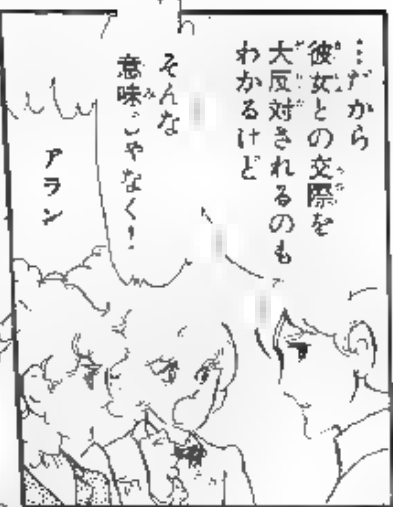 …だから
彼女との交際を
大反対されるのも
わかるけど
そんな
意味じゃなく!
アラン